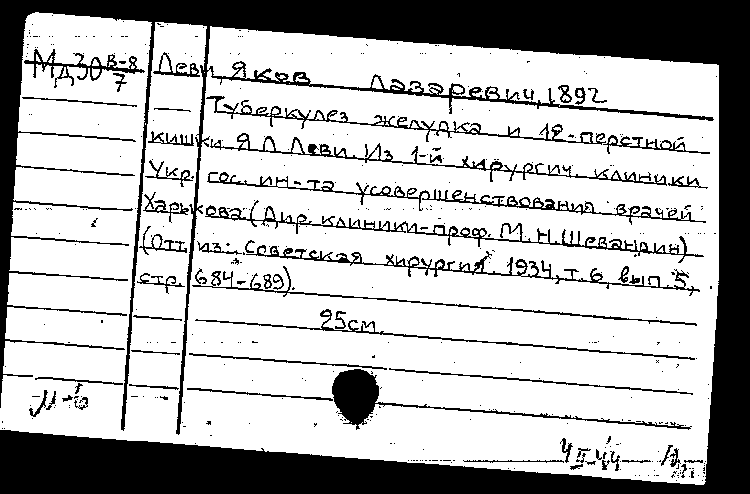 Мд30 В-8/7 Леви, Яков Лазаревич, 1892
Туберкулез желудка и 12-перстной
кишки Я Л Леви. Из 1-й хирургич. клиники
Укр. гос. ин-та усовершенствования врачей
Харькова (Дир. клиники-проф. М.Н.Шевандин)
(Отт. из: Советская хирургия. 1934, т. 6, вып. 5,
стр. 684-689).
25см.
4 II-44